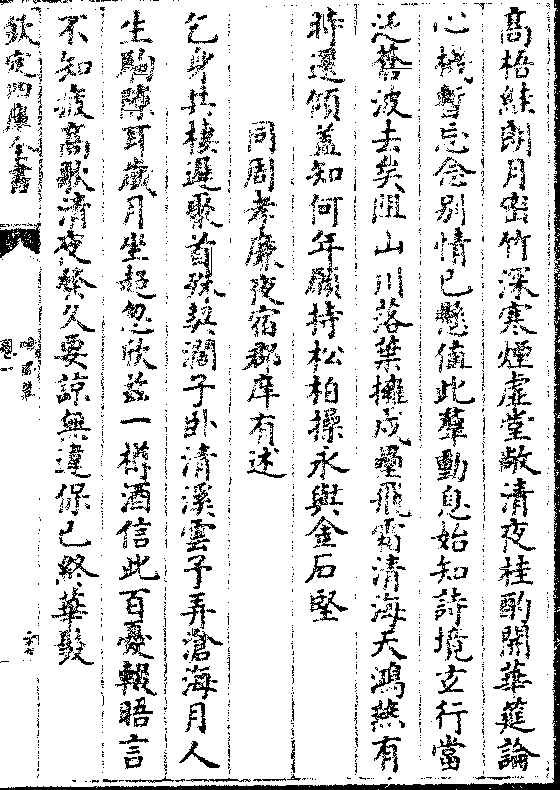 高梧鮭朗月密竹深寒煙虛堂敞清夜桂酌開華筵論
心機暫忘念別情已懸值此羣動息始知詩境玄行當
泛蒼波去矣阻山川落葉擁戍壘飛霜清海天鴻燕有
時還傾蓋知何年願持松柏操永與金石堅
同周孝廉夜宿郡庠有述
乞身共棲遲聚首殊契濶子卧清溪雲予弄滄海月人
生駒隙耳歲月坐超忽欣兹一樽酒信此百憂輟晤言
不知疲高歌清夜發久要諒無違保已終華髮
欽定四庫全書
卷一